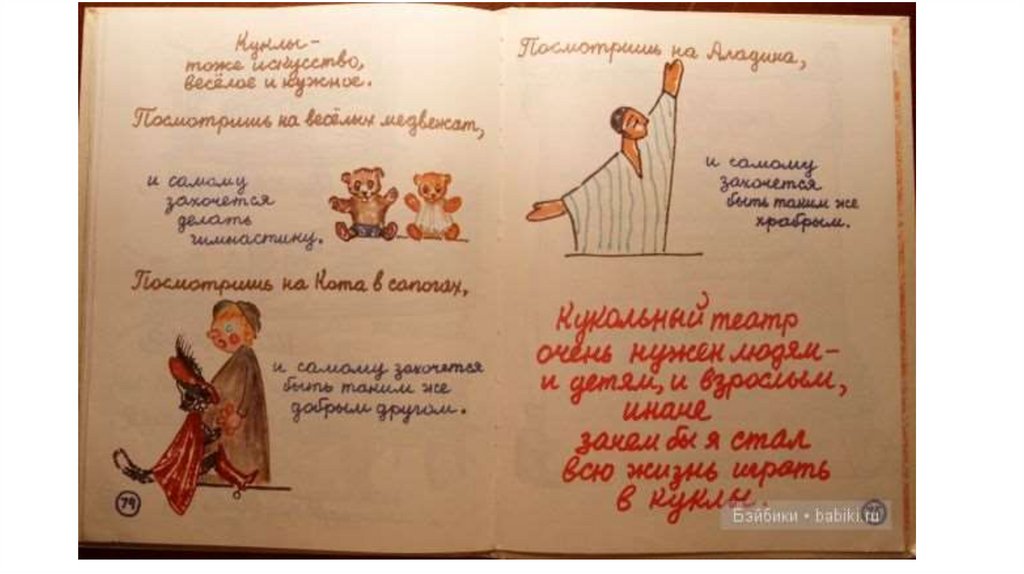 Куклы –
тоже искусство,
весёлое и нужное.
Посмотришь на весёлых медвежат,
и самому
захочется
делать
гимнастику.
Посмотришь на Кота в сапогах,
и самому захочется
быть таким же
добрым другом.
74
Посмотришь на Аладина,
и самому
захочется
быть таким же
храбрым.
Кукольный театр
очень нужен людям –
и детям, и взрослым,
иначе
зачем бы я стал
всю жизнь играть
в куклы.
75
Бэйбики • babiki.ru